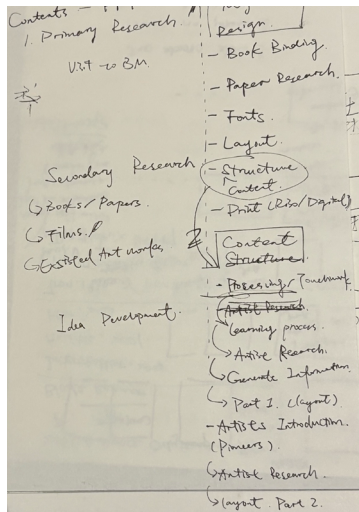 Contents -
1. Primary Research.
Visit to BM.
Secondary Research
Books / Papers.
Films.
Existed Art works
Idea Development.
Design.
- Book Binding.
- Paper Research.
- Fonts.
- Layout.
- Structure
Content.
- Print (Riso/Digital)
Content
Structure
- Processing / Touchdesigner
- Artist Research.
Learning process.
Artist Research.
Generate Information.
Part 1. (Layout)
- Artists Introduction.
(Pioneers).
Artist Research.
Layout Part 2.